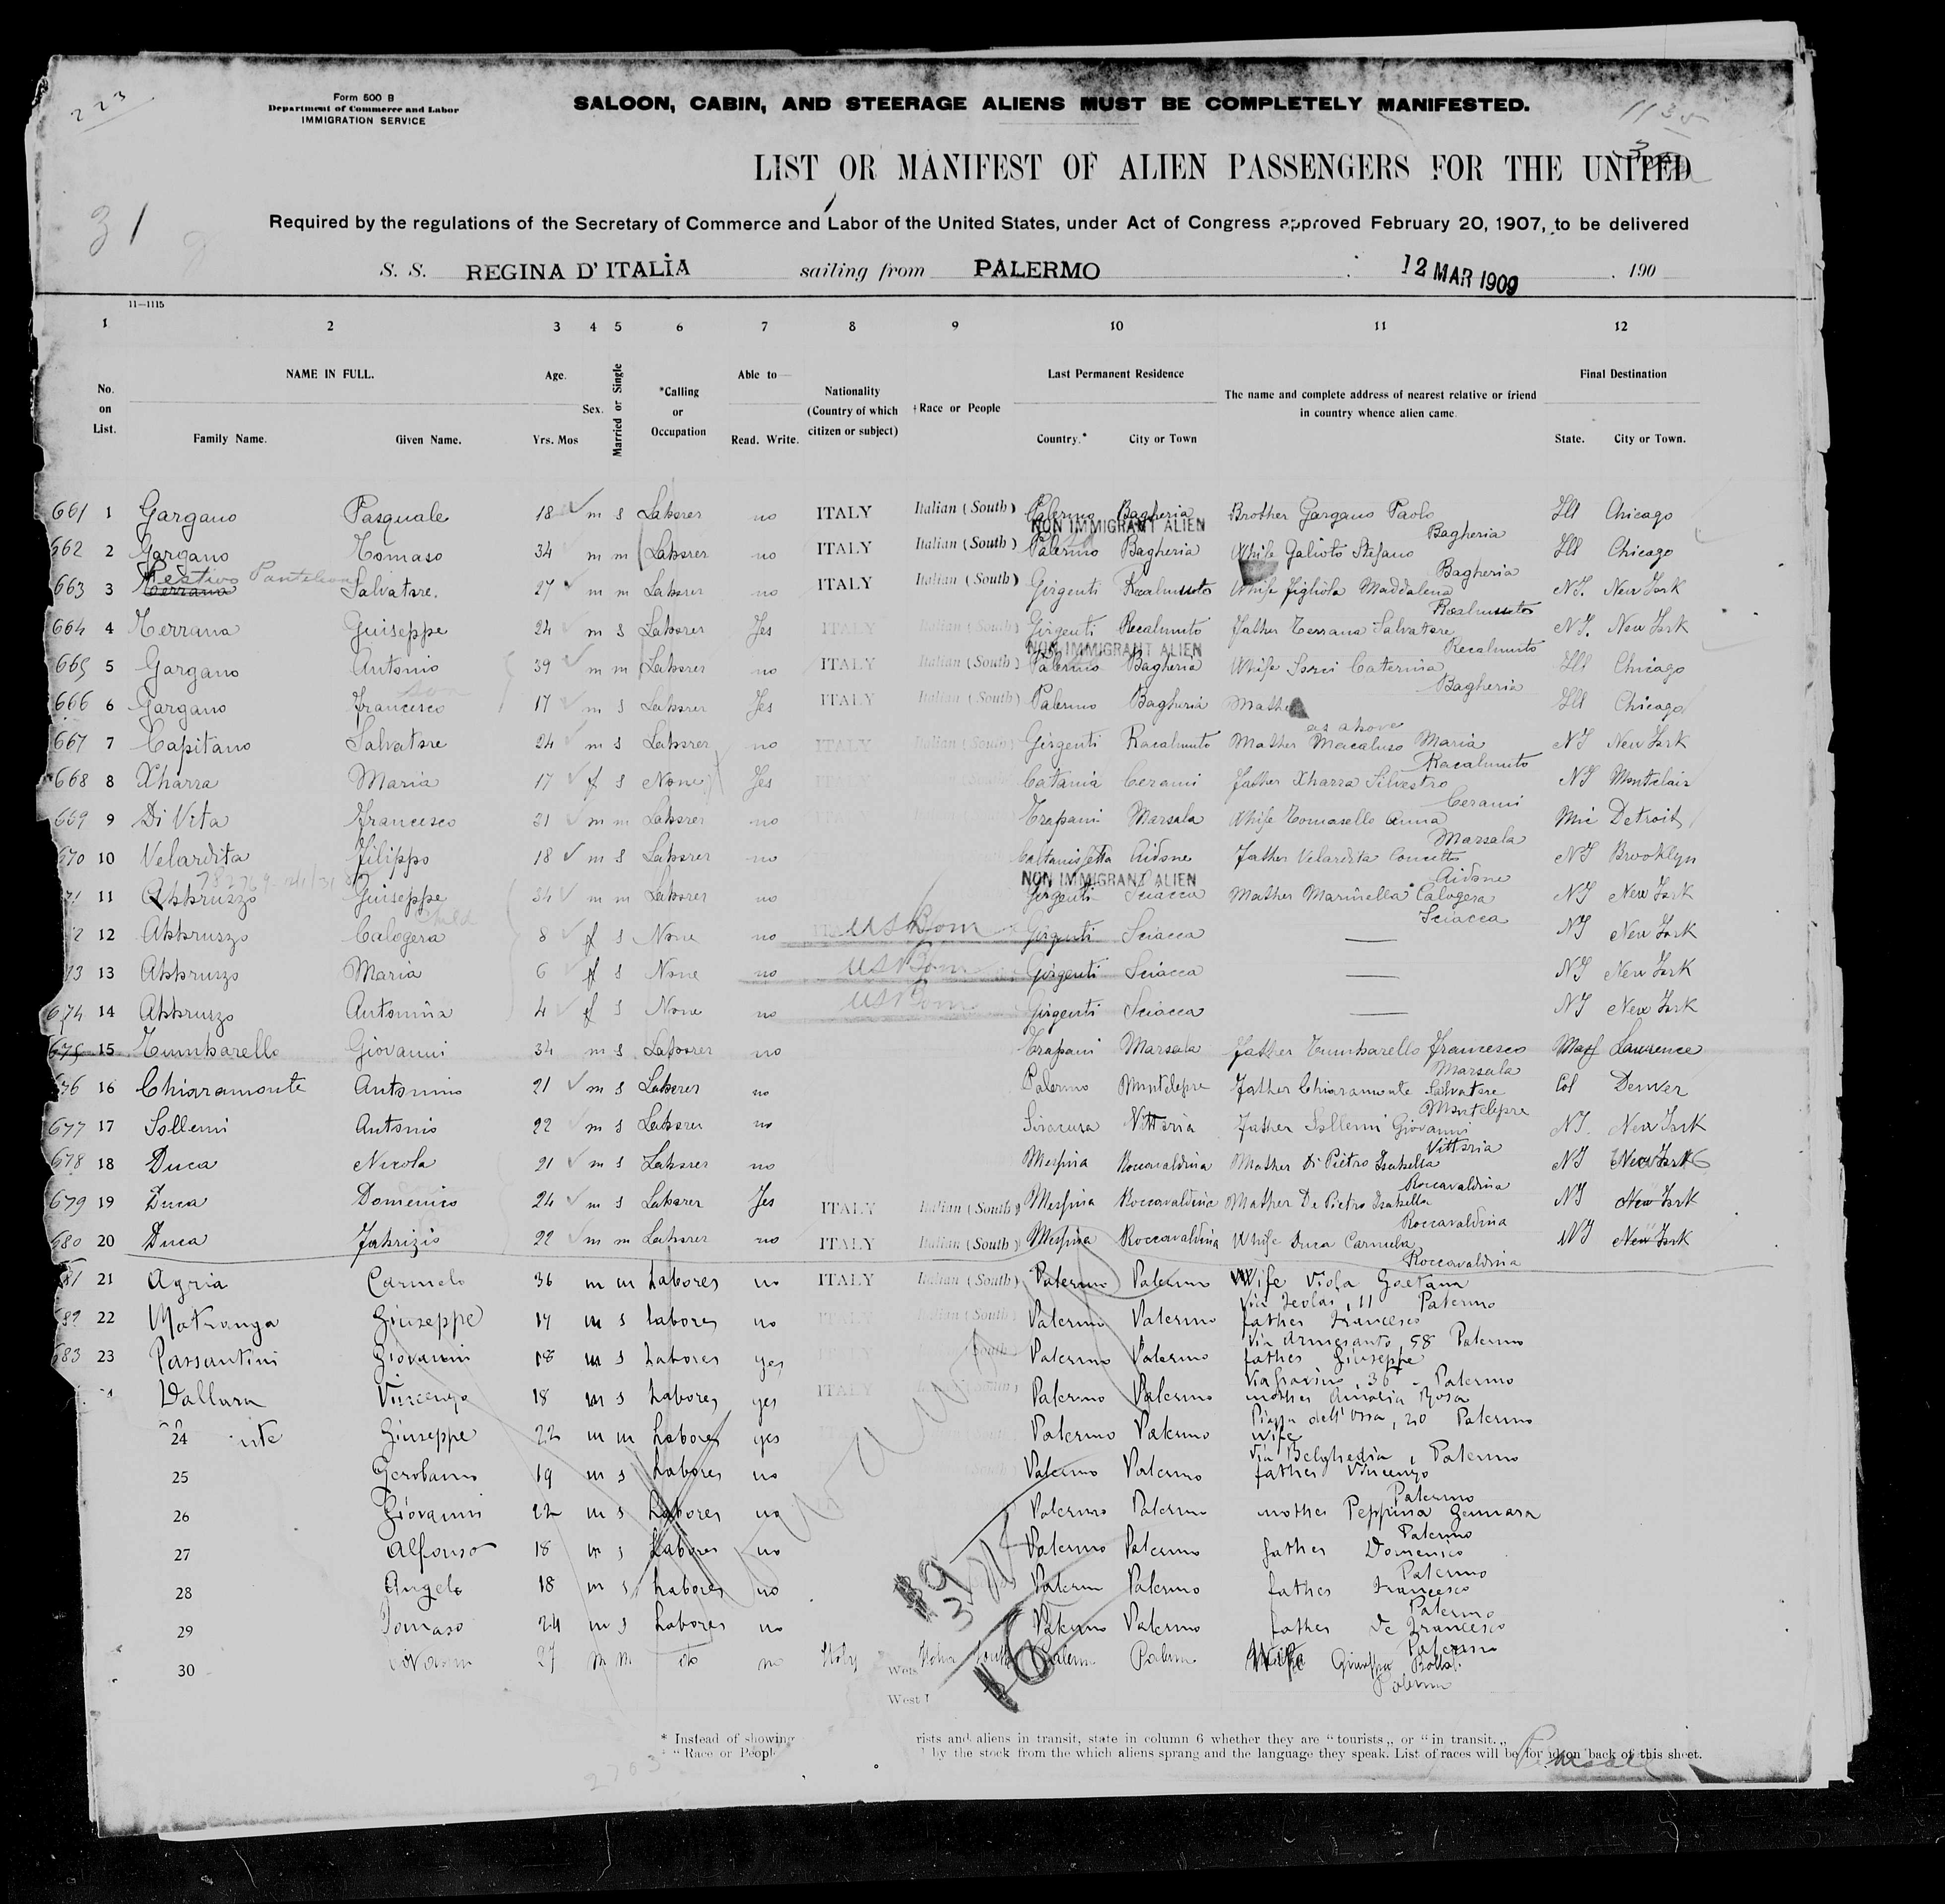 223
Form 500 B
Department of Commerce and Labor
IMMIGRATION SERVICE
SALOON, CABIN, AND STEERAGE ALIENS MUST BE COMPLETELY MANIFESTED.
1135
LIST OR MANIFEST OF ALIEN PASSENGERS FOR THE UNITED
31
Required by the regulations of the Secretary of Commerce and Labor of the United States, under Act of Congress approved February 20, 1907, to be delivered
S. S. REGINA D'ITALIA sailing from PALERMO 12 MAR 1909 . 190
11—1115
1 2 3 4 5 6 7 8 9 10 11 12
No. on List. NAME IN FULL. Family Name. Given Name. Age. Yrs. Mos Sex. Married or Single *Calling or Occupation Able to— Read. Write. Nationality (Country of which citizen or subject) †Race or People Last Permanent Residence Country.* City or Town The name and complete address of nearest relative or friend in country whence alien came. Final Destination State. City or Town.
661 1 Gargano Pasquale 18 m s Laborer no ITALY Italian (South) Palermo Bagheria Brother Gargano Paolo Bagheria Ill Chicago
NON IMMIGRANT ALIEN
662 2 Gargano Tomaso 34 m m Laborer no ITALY Italian (South) Palermo Bagheria Whife Galioto Stefano Bagheria Ill Chicago
Restivo Pantileone
663 3 Terrana Salvatore. 27 m m Laborer no ITALY Italian (South) Girgenti Recalmuto Whife Figliola Maddalena Recalmuto N.Y. New York
664 4 Terrana Guiseppe 24 m s Laborer Yes ITALY Italian (South) Girgenti Recalmuto Father Terrana Salvatore Recalmuto N.Y. New York
NON IMMIGRANT ALIEN
665 5 Gargano Antonio 39 m m Laborer no ITALY Italian (South) Palermo Bagheria Whife Caterina Bagheria Ill Chicago
son
666 6 Gargano Francesco 17 m s Laborer Yes ITALY Italian (South) Palermo Bagheria Mother as above Ill Chicago
667 7 Capitano Salvatore 24 m s Laborer no ITALY Italian (South) Girgenti Racalmuto Mother Macaluso Maria Racalmuto NY New York
668 8 Xharra Maria 17 f s None Yes Catania Cerami Father Xharra Silvestro Cerami NY Montclair
669 9 Di Vita Francesco 31 m m Laborer no Trapani Marsala Whife Tomasello Anna Marsala Mic Detroit
670 10 Velardita Filippo 18 m s Laborer no Caltanissetta Aidone Father Velardita Concetto Aidone NY Brooklyn
NON IMMIGRANT ALIEN
71 11 Abbruzzo Guiseppe 34 m m Laborer no Girgenti Sciacca Mother Marinella Calogera Sciacca NY New York
child
2 12 Abbruzzo Calogera 8 f s None no US Born Girgenti Sciacca — NY New York
73 13 Abbruzzo Maria 6 f s None no US Born Girgenti Sciacca — NY New York
674 14 Abbruzzo Antonina 4 f s None no US Born Girgenti Sciacca — NY New York
675 15 Tumbarello Giovanni 34 m s Laborer no Trapani Marsala Father Tumbarello Francesco Marsala Mass Lawrence
676 16 Chiaramonte Antonino 21 m s Laborer no Palermo Montelepre Father Chiaramonte Salvatore Montelepre Col Denver
677 17 Sollemi Antonio 22 m s Laborer no Siracusa Vittoria Father Sollemi Giovanni Vittoria NY. New York
678 18 Duca Nicola 21 m s Laborer no Messina Roccavaldina Mother Di Pietro Isabella Roccavaldina NY New York
679 19 Duca Domenico 24 m s Laborer Yes ITALY Italian (South) Messina Roccavaldina Mother De Pietro Isabella Roccavaldina NY New York
680 20 Duca Fabrizio 22 m m Laborer no ITALY Italian (South) Messina Roccavaldina Whife Duca Carmela Roccavaldina NY New York
81 21 Agria Carmelo 36 m m Laborer no ITALY Italian (South) Palermo Palermo Wife Viola Gaetana 11 Palermo
682 22 Matranga Giuseppe 17 m s Laborer no ITALY Italian (South) Palermo Palermo father Francesco Via 58 Palermo
683 23 Passantini Giovanni 18 m s Laborer yes South Palermo Palermo father Giuseppe 36 Palermo
Dallara Vincenzo 18 m s Laborer yes ITALY Palermo Palermo mother Rosa Piazza 20 Palermo
24 Giuseppe 22 m m Laborer yes Palermo Palermo wife Via Palermo
25 19 m s Laborer no Palermo Palermo father Vincenzo Palermo
26 Giovanni 22 m s Laborer no Palermo Palermo mother Peppina Palermo
27 Alfonso 18 m s Laborer no Palermo Palermo father Domenico Palermo
28 Angelo 18 m s Laborer no Palermo Palermo father Francesco Palermo
29 Tomaso 24 m s Laborer no Palermo Palermo father De Francesco Palermo
30 27 m m do no Italy Italian South Palermo Palermo Wife Palermo
16
West I
* Instead of showing rists and aliens in transit, state in column 6 whether they are “tourists„ or “in transit.„
“Race or People by the stock from the which aliens sprang and the language they speak. List of races will be for id on back of this sheet.
2703